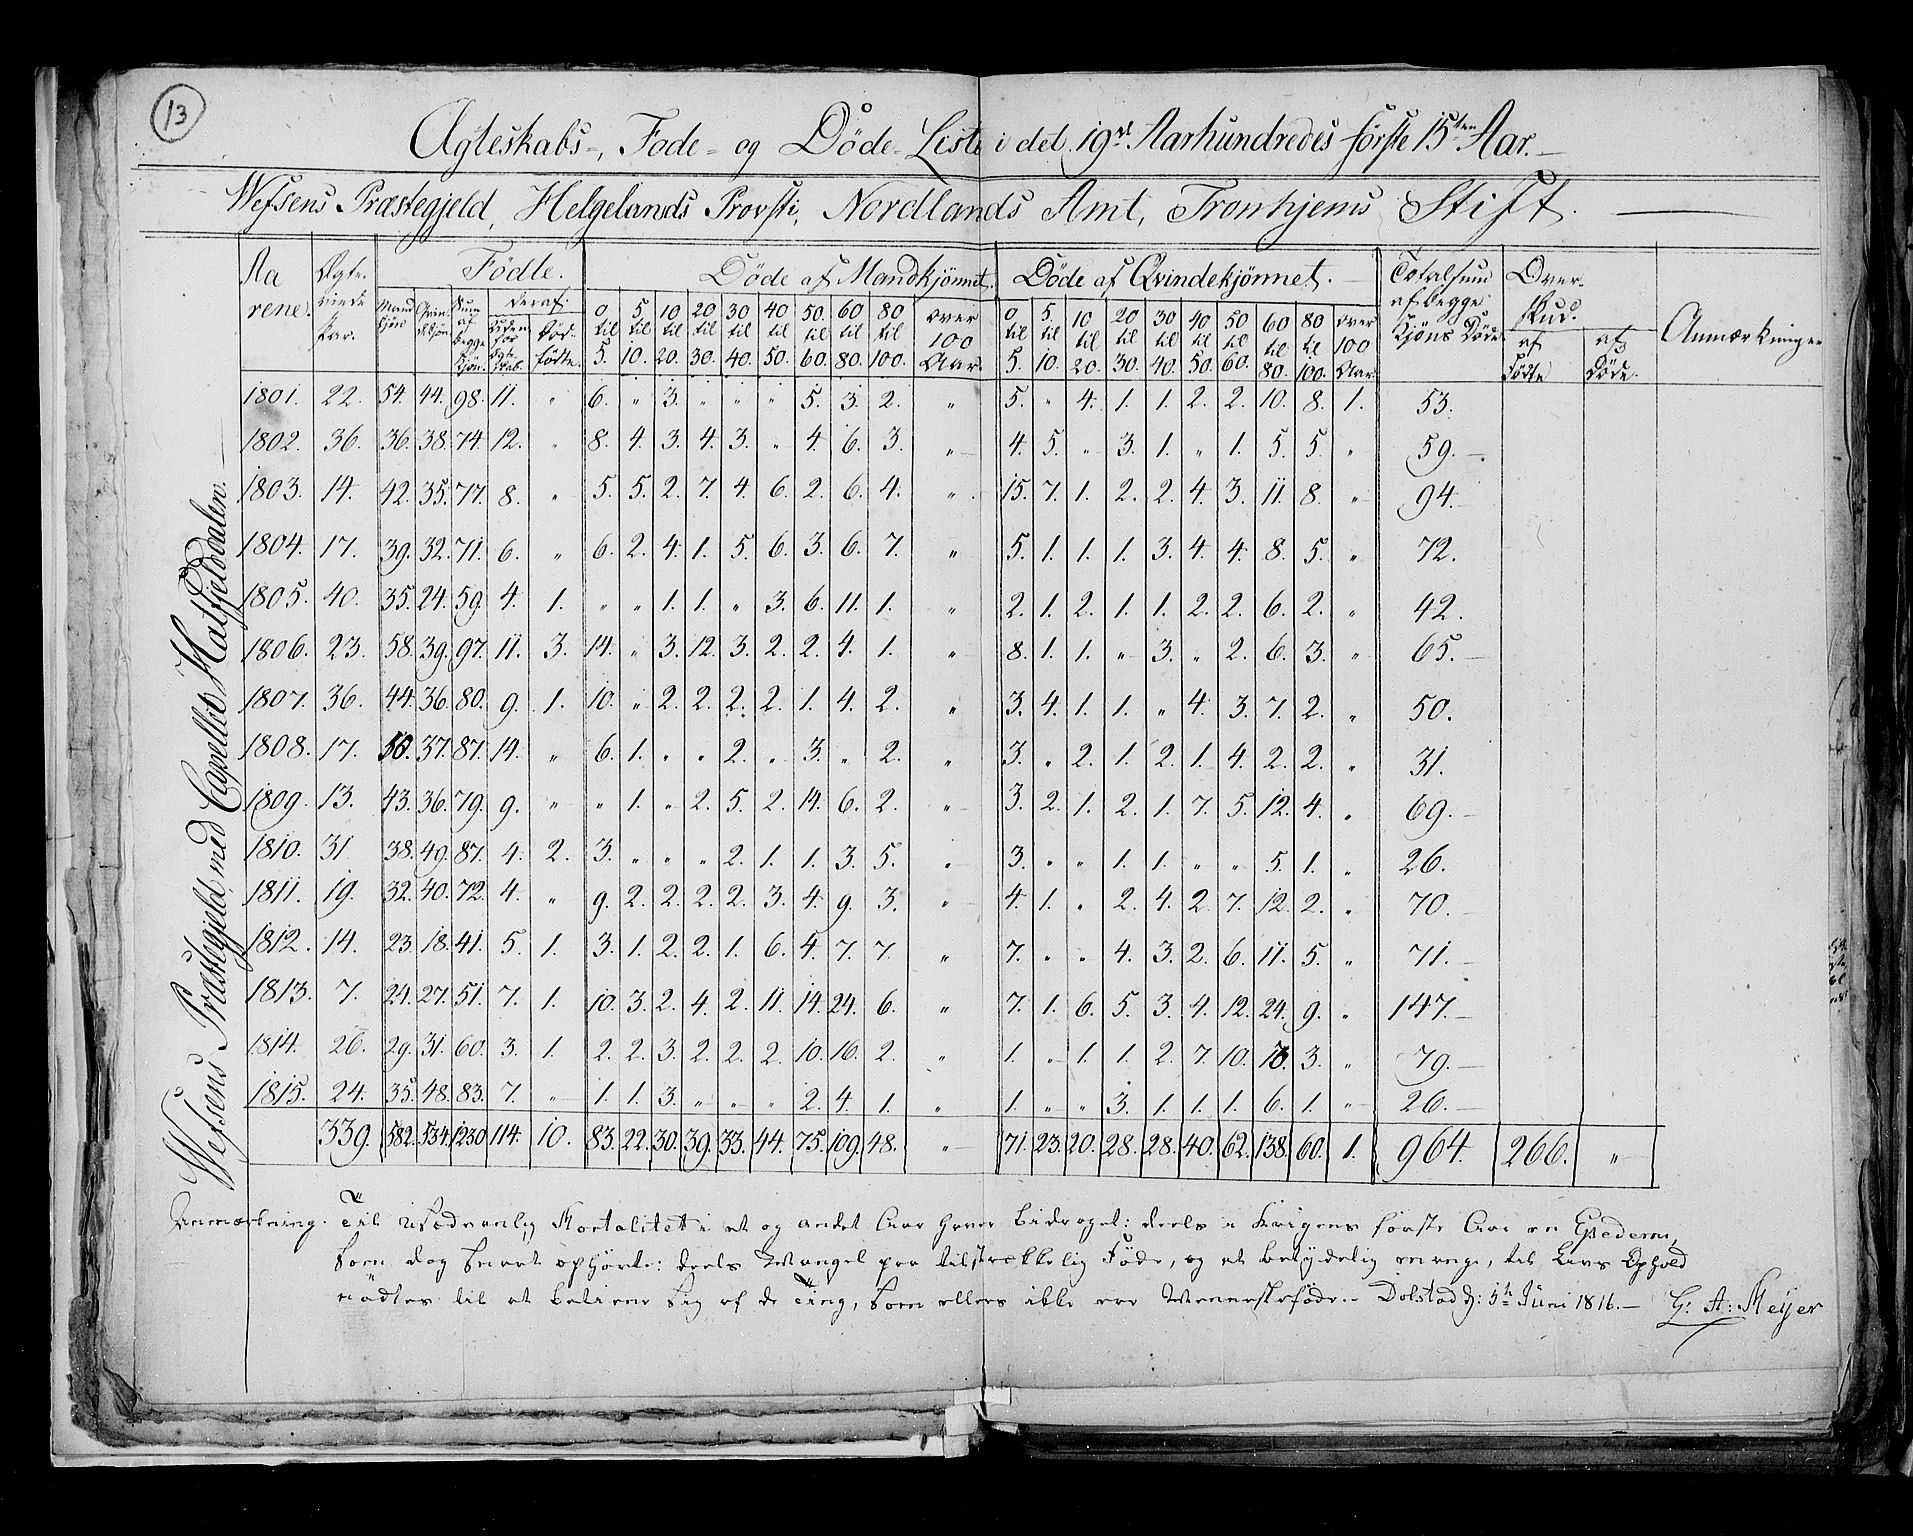 13
Ægteskabs-, Føde- og Døde-Liste i det 19de Aarhundredes første 15ten Aar.
Wefsens Præstegjeld, Helgelands Provsti, Nordlands Amt, Tronhjems Stift.
Wefsens Præstegjeld, med Capellet Hatfjelddalen.
Aarene. Ægte-viede Par. Fødte. Døde af Mandkjønnet. Døde af Qvindekjønnet. Totalsum af begge Kjøns Døde Over-skud. Anmærkninger
Mand Kjøn Qvin-dekjøn Sum af begge Kjøn. deraf: Uden for Ægte-skab. Død-fødte. 0 til 5. 5 til 10. 10 til 20. 20 til 30. 30 til 40. 40 til 50. 50 til 60. 60 til 80. 80 til 100. over 100 Aar. 0 til 5. 5. til 10. 10 til 20. 20 til 30. 30 til 40. 40 til 50. 50 til 60. 60 til 80. 80 til 100. over 100 Aar. af Fødte af Døde.
1801. 22. 54. 44. 98. 11. " 6. " 3. " " " 5. 3. 2. " 5. " 4. 1. 1. 2. 2. 10. 8. 1. 53.
1802. 36. 36. 38. 74. 12. " 8. 4. 3. 4. 3. " 4. 6. 3. " 4. 5. " 3. 1. " 1. 5. 5. " 59.
1803. 14. 42. 35. 77. 8. " 5. 5. 2. 7. 4. 6. 2. 6. 4. " 15. 7. 1. 2. 2. 4. 3. 11. 8. " 94.
1804. 17. 39. 32. 71. 6. " 6. 2. 4. 1. 5. 6. 3. 6. 7. " 5. 1. 1. 1. 3. 4. 4. 8. 5. " 72.
1805. 40. 35. 24. 59. 4. 1. " " 1. 1. " 3. 6. 11. 1. " 2. 1. 2. 1. 1. 2. 2. 6. 2. " 42.
1806. 23. 58. 39. 97. 11. 3. 14. " 3. 12. 3. 2. 2. 4. 1. " 8. 1. 1. " 3. " 2. 6. 3. " 65.
1807. 36. 44. 36. 80. 9. 1. 10. " 2. 2. 2. 2. 1. 4. 2. " 3. 4. 1. 1. " 4. 3. 7. 2. " 50.
1808. 17. 50. 37. 87. 14. " 6. 1. " " 2. " 3. " 2. " 3. " 2. 1. 2. 1. 4. 2. 2. " 31.
1809. 13. 43. 36. 79. 9. " " 1. " 2. 5. 2. 14. 6. 2. " 3. 2. 1. 2. 1. 7. 5. 12. 4. " 69.
1810. 31 38. 49. 87. 4. 2. 3. " " " 2. 1. 1. 3. 5. " 3. " " 1. 1. " " 5. 1. " 26.
1811. 19. 32. 40. 72. 4. " 9. 2. 2. 2. 2. 3. 4. 9. 3. " 4. 1. " 2. 4. 2. 7. 12. 2. " 70.
1812. 14. 23. 18. 41. 5. 1. 3. 1. 2. 2. 1. 6. 4. 7. 7. " 7. " " 4. 3. 2. 6. 11. 5. " 71.
1813. 7. 24. 27. 51. 7. 1. 10. 3. 2. 4. 2. 11. 14. 24. 6. " 7. 1. 6. 5. 3. 4. 12. 24. 9. " 147.
1814. 26. 29. 31. 60. 3. 1. 2. 2. 3. 2. 2. 2. 10. 16. 2. " 1. " 1. 1. 2. 7. 10. 13. 3. " 79.
1815. 24. 35. 48. 83. 7. " 1. 1. 3. " " " 2. 4. 1. " 1. " " 3. 1. 1. 1. 6. 1. " 26.
339. 582. 534. 1230 114. 10. 83. 22. 30. 39. 33. 44. 75. 109. 48. " 71. 23. 20. 28. 28. 40. 62. 138. 60. 1. 964. 266. "
Anmærkning. Til usædvanlig Mortalitet i et og andet Aar haver bidraget: deels i Krigens første Aar en Epedemi,
som dog snart ophørte: deels Mangel paa tilstrækkelig Føde, og at betydelig mange, til Livs Ophold
nødtes til at betiene sig af de Ting, som ellers ikke ere Menneskeføde.- Dolstad d: 5te Juni 1816.- G: A: Meijer